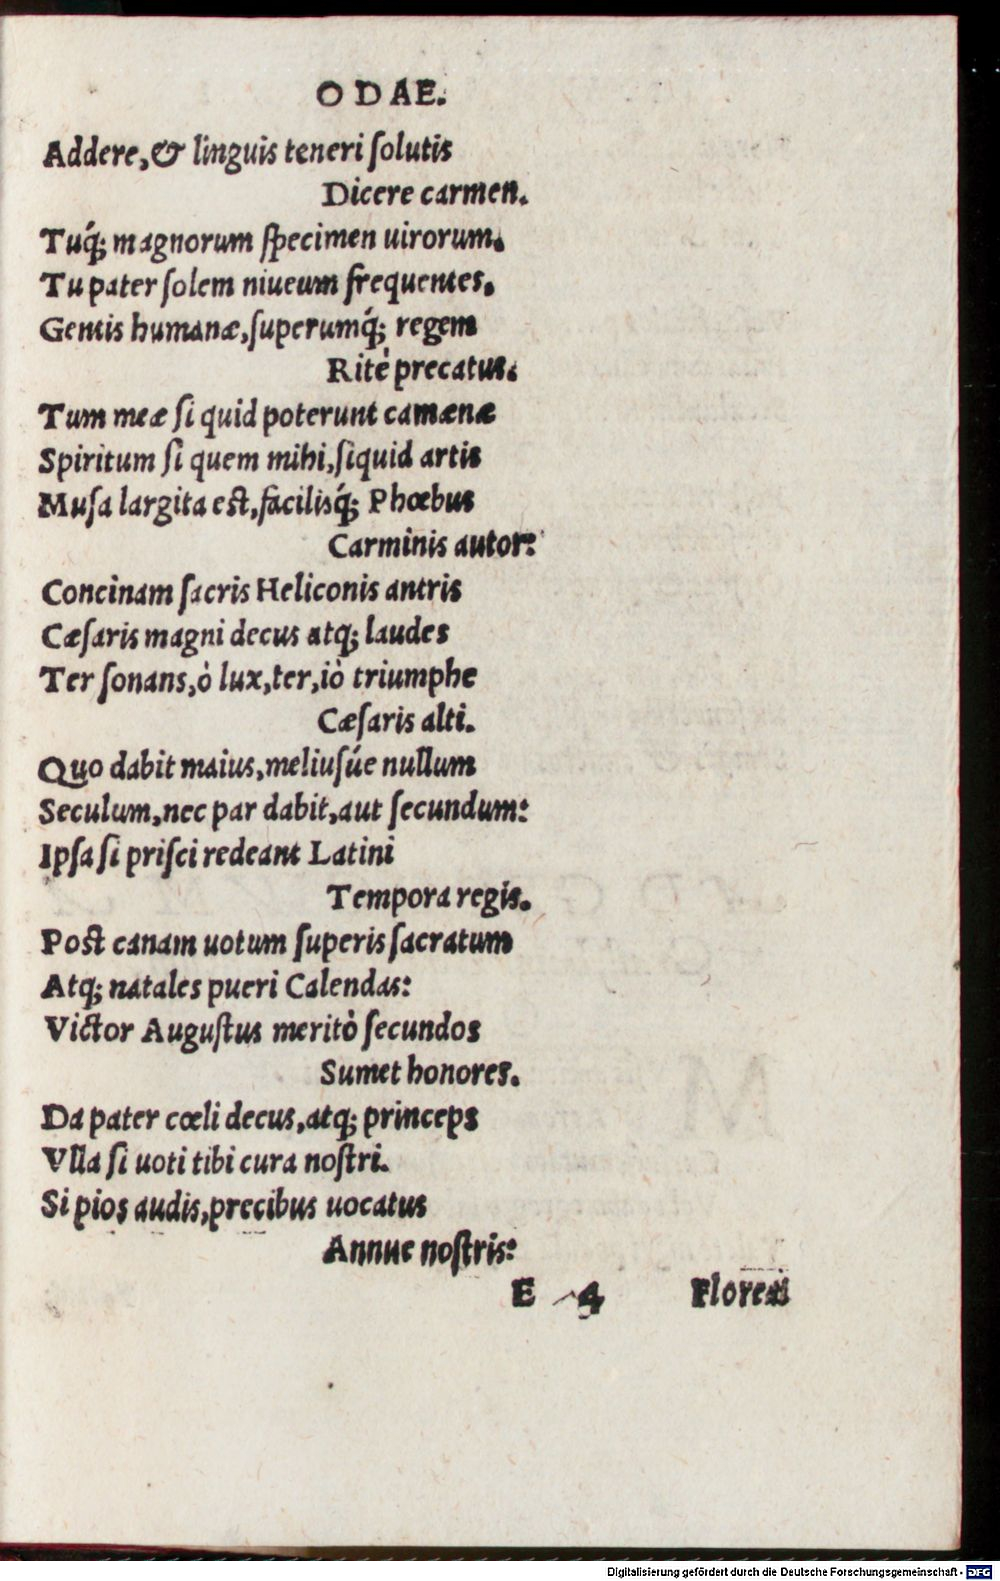 ODAE.
Addere, & linguis teneri ſolutis
Dicere carmen.
Tuq́; magnorum ſpecimen uirorum.
Tu pater ſolem niueum frequentes.
Gentis humanæ, ſuperumq́; regem
Ritè precatus.
Tum meæ ſi quid poterunt camænæ
Spiritum ſi quem mihi, ſiquid artis
Muſa largita eſt, facilisq́; Phœbus
Carminis autor:
Concinam ſacris Heliconis antris
Cæſaris magni decus atq; laudes
Ter ſonans, ò lux, ter, iò triumphe
Cæſaris alti.
Quo dabit maius, meliuſúe nullum
Seculum, nec par dabit, aut ſecundum:
Ipſa ſi priſci redeant Latini
Tempora regis.
Poſt canam uotum ſuperis ſacratum
Atq; natales pueri Calendas:
Victor Auguſtus meritò ſecundos
Sumet honores.
Da pater cœli decus, atq; princeps
Vlla ſi uoti tibi cura noſtri.
Si pios audis, precibus uocatus
Annue noſtris:
E 4 Floreat
Digitalisierung gefördert durch die Deutsche Forschungsgemeinschaft - DFG